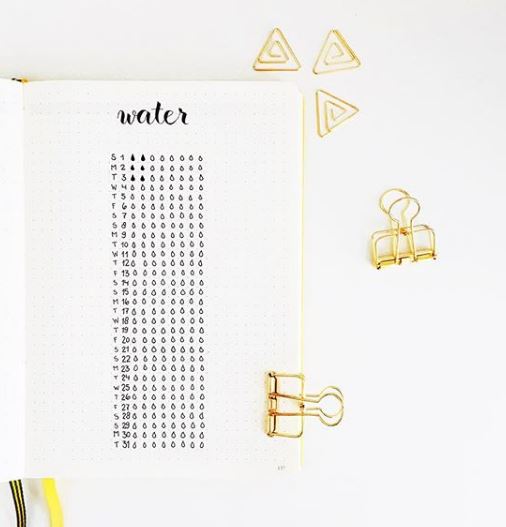 water
S 1
M 2
T 3
W 4
T 5
F 6
S 7
S 8
M 9
T 10
W 11
T 12
F 13
S 14
S 15
M 16
T 17
W 18
T 19
F 20
S 21
S 22
M 23
T 24
W 25
T 26
F 27
S 28
S 29
M 30
T 31